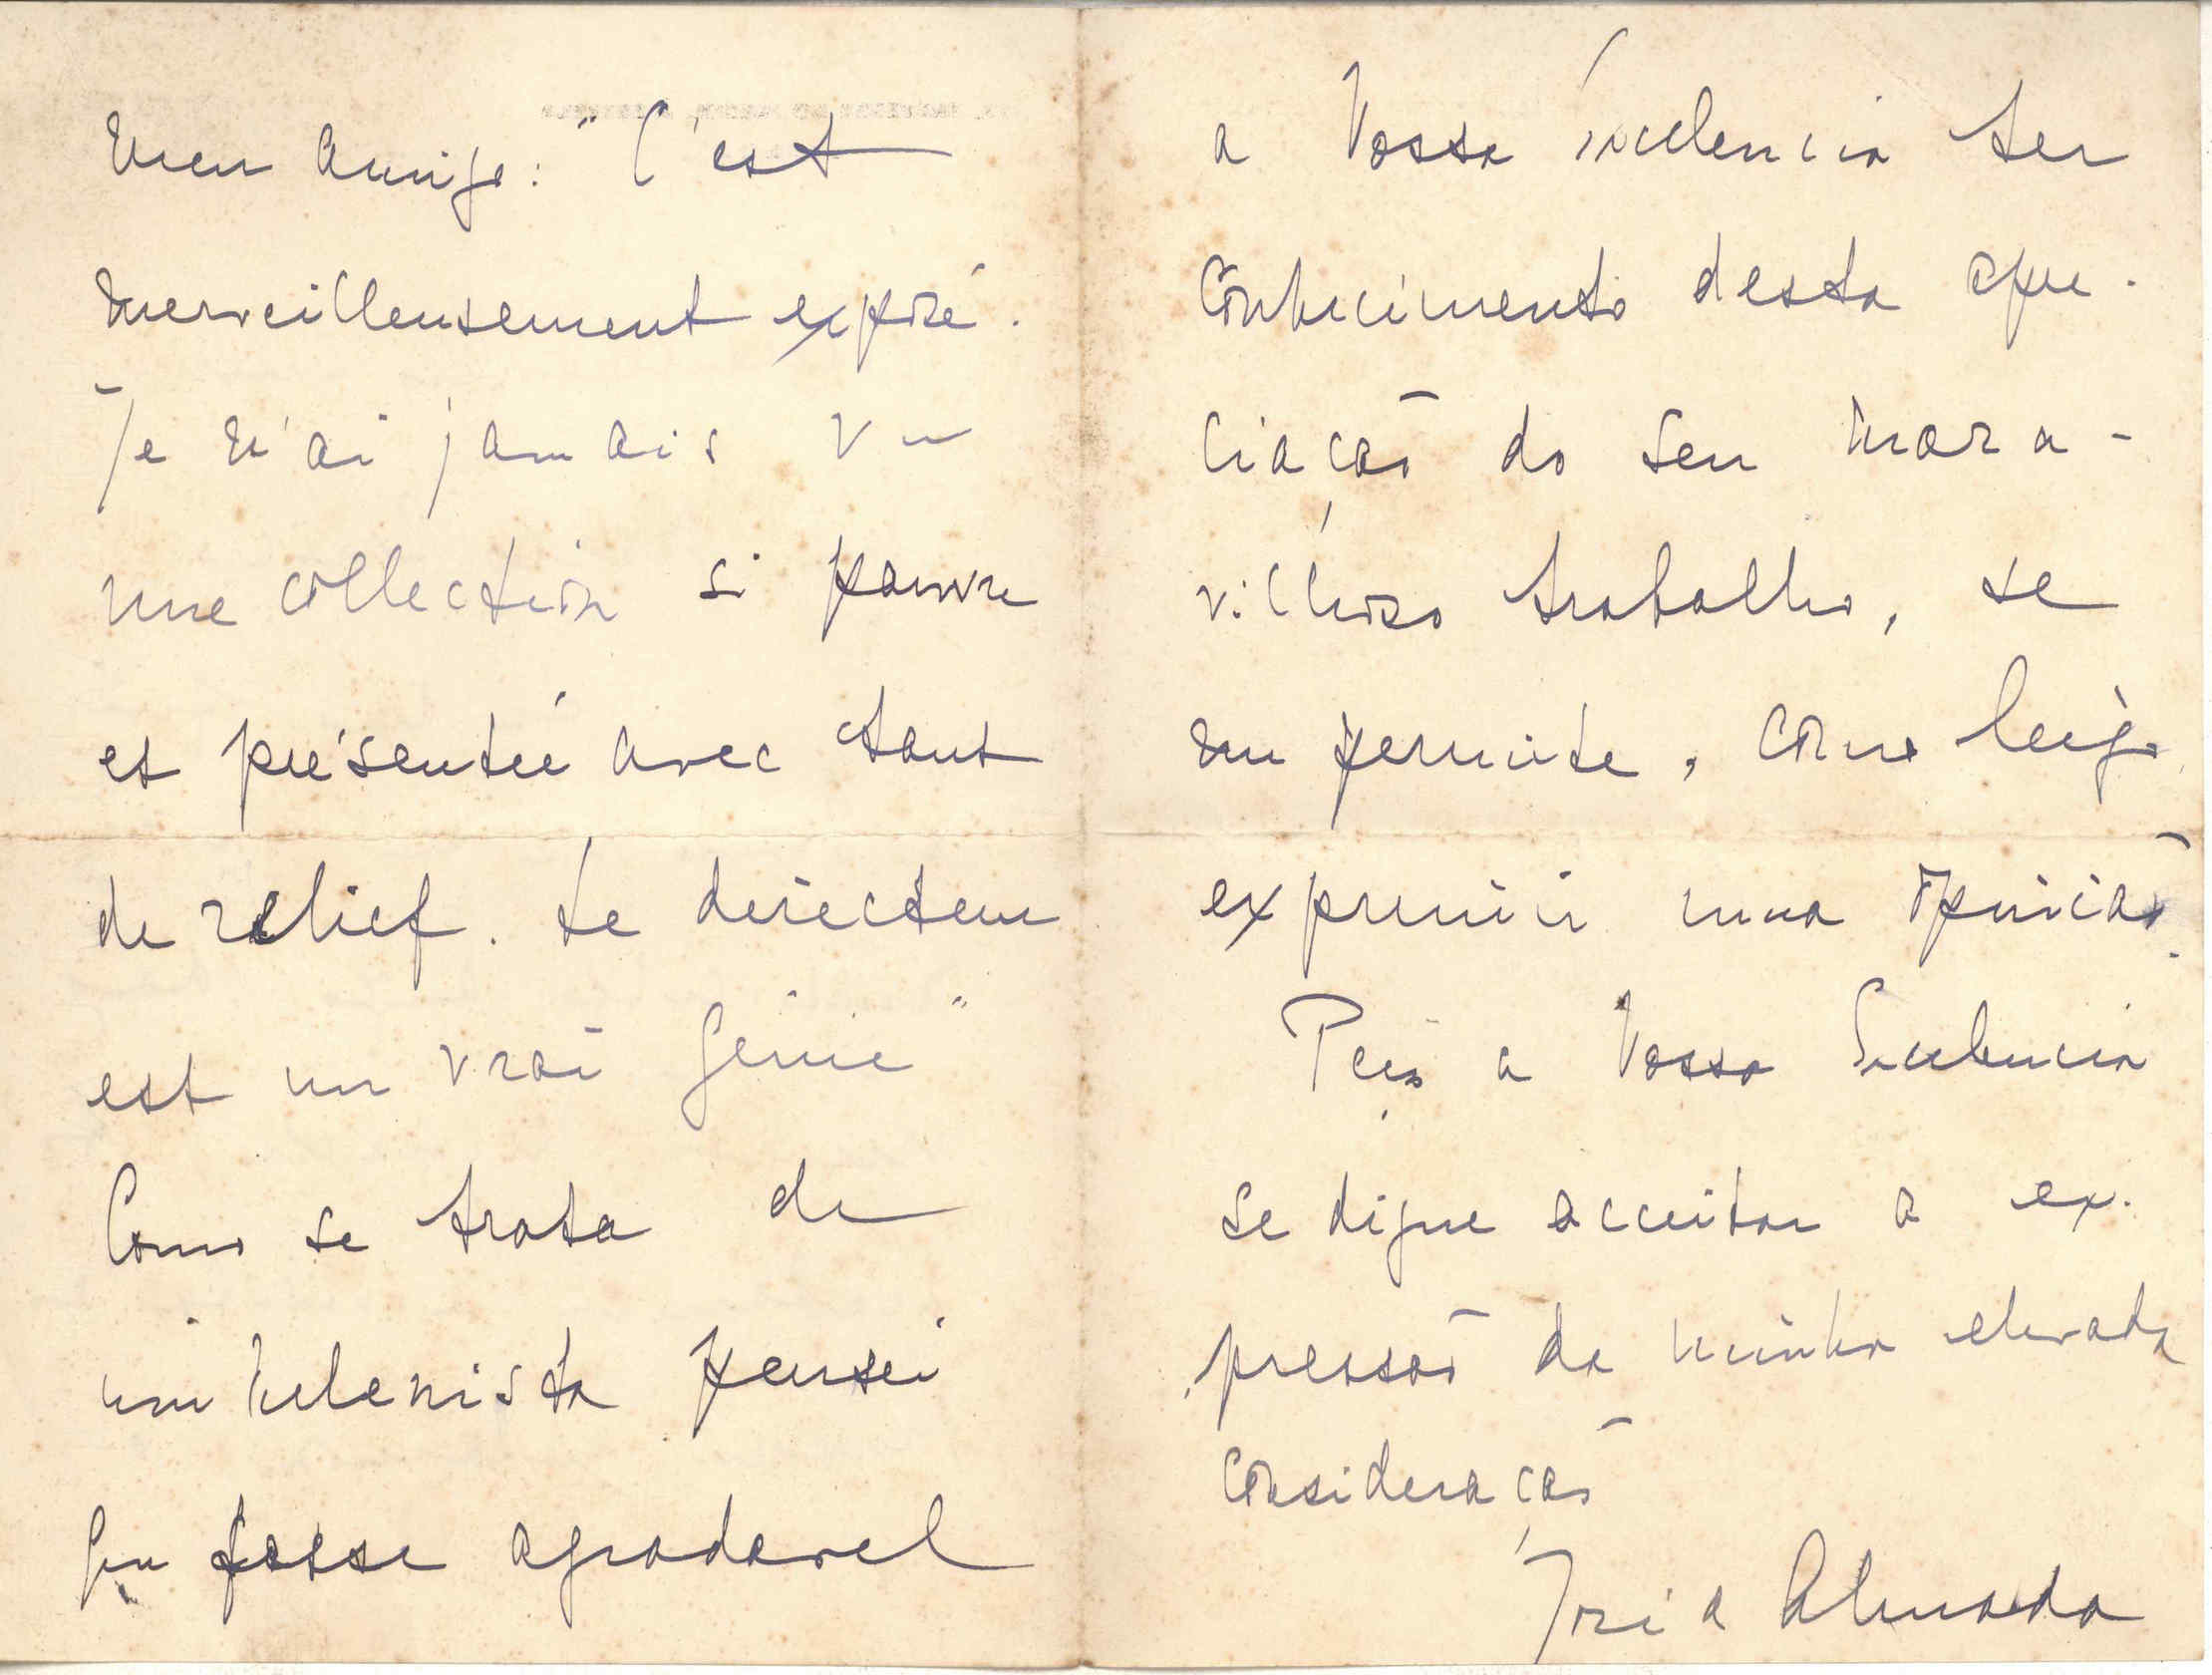 meu amigo: "C'est
merveilleusement exposé.
Je n'ai jamais vu
une collection si pauvre
et présentée avec tant
de relief. Le directeur
est un vrai génie"
Como se trata de
um helenista pensei
que fosse agradavel
a Vossa Excelencia ter
conhecimento desta apre-
ciação do seu mara-
vilhoso trabalho, se
me permite, como leigo,
exprimir uma opinião.
Peço a Vossa Excelencia
se digne acceitar a ex-
pressão da minha elevada
consideração
José d'Almada